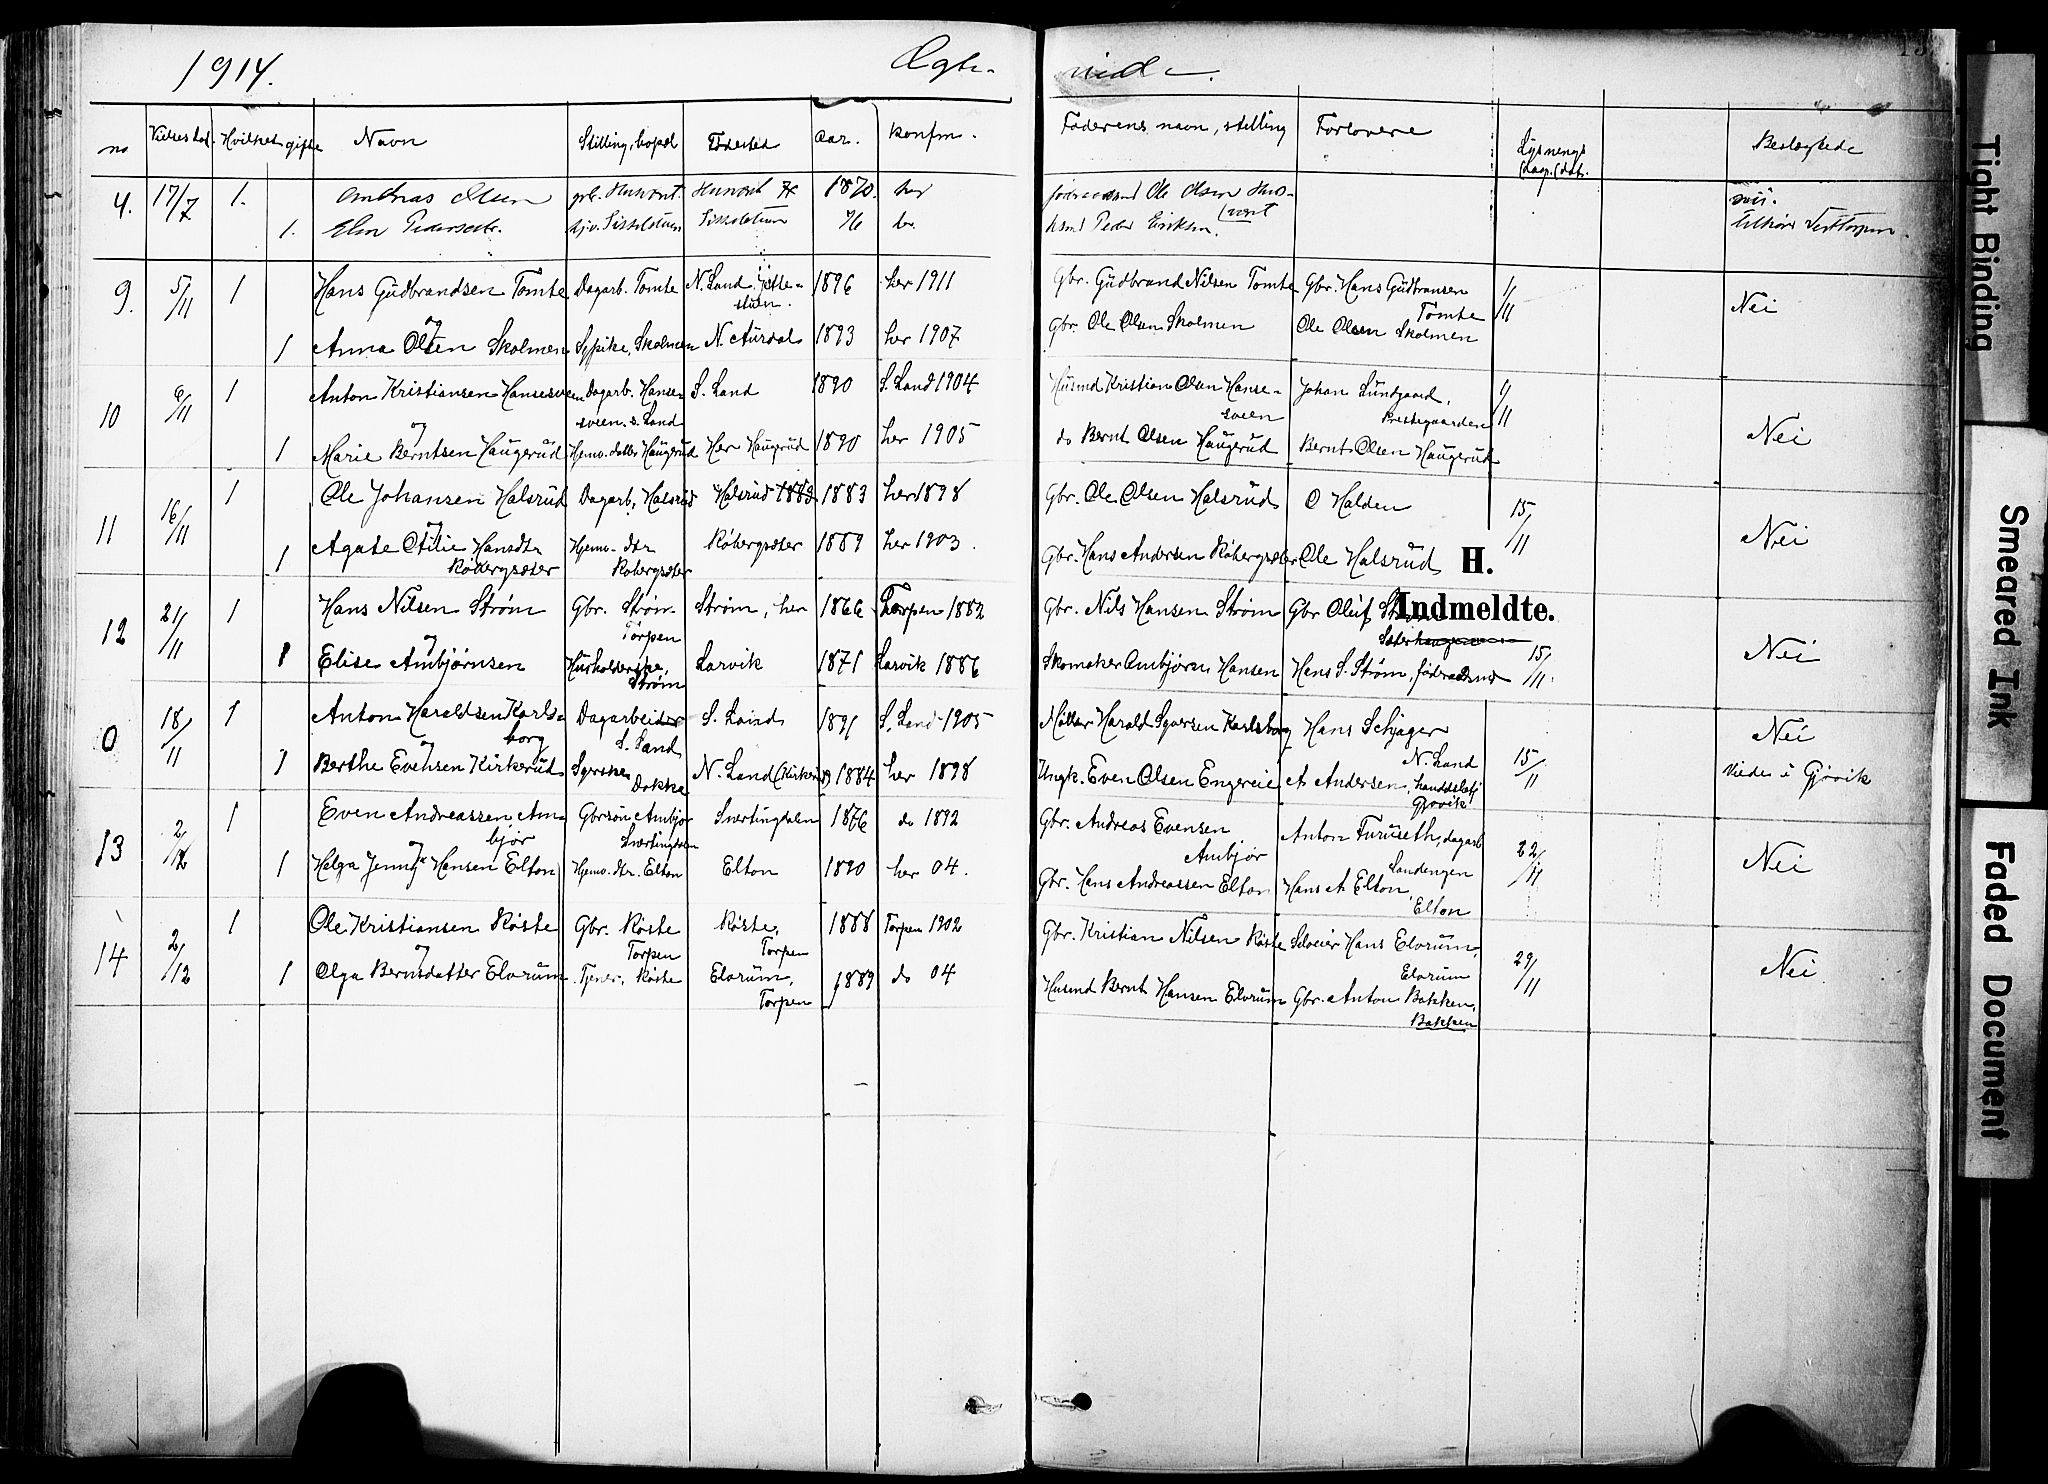 1914. Ægte- viede.
no Vielsesdat. Hvilket gifte Navn Stilling, bopel Fødested Aar. Konfm. Faderens navn, stilling Forlovere Lysnings (dag.(dat. Beslægtede
4. 17/7 1. Andreas Olsen 1870. her Ole Olsen
1. Pedersdtr. 76 Peder Eriksen.
9. 5/11 1 Hans Gudbrandsen Tomte Dagarb. Tomte N. Land 1896 her 1911 Gbr. Gudbrand Nilsen Tomte Gbr. Hans Gudbransen 1/11 Nei
Tomte
og
1 Anna Olsen Skolmen Sypike, Skolmen N. Aurdal 1893 her 1907 Gbr. Ole Olsen Skolmen Ole Olsen Skolmen
10 6/11 1 Anton Kristiansen Hansesveen Dagarb. Hanse- S. Land 1890 S. Land 1904 Husmd Kristian Olsen Hanse- Johan Lundgaard, 1/11 Nei
sveen. S. Land sveen Prestegaarden
og
1 Marie Berntsen Haugerud Hjemv. datter Haugerud Her Haugerud 1890 her 1905 do Bernt Olsen Haugerud Bernt Olsen Haugerud
11 16/11 1 Ole Johansen Halsrud Dagarb, Halsrud Halsrud 1883 her 1898 Gbr. Ole Olsen Halsrud O Halden 15/11 Nei
og
1 Agate Otilie Hansdtr Hjemv. dtr Røbergsæter 1889 her 1903. Gbr. Hans Andersen Røbergsæter Ole Halsrud H.
Røbergsæter Røbergsæter
12 21/11 1 Hans Nilsen Strøm Gbr. Strøm Strøm, her 1866 Torpen 1882 Gbr. Nils Hansen Strøm Gbr Oluf Indmeldte.
Torpen
og
1 Elise Ambjørnsen Husholderske, Larvik 1871 Larvik 1886 Skomaker Ambjørn Hansen Hans S. Strøm, føderaadsmd 15/11. Nei
Strøm
0 18/11 1 Anton Haraldsen Karls- Dagarbeider S. Land 1891 S. Land 1905 Møller Harald Syversen Karlsborg Hans Schjager Nei
borg S. Land N. Land
og
1 Berthe Evensen Kirkerud Syerske N. Land (Kirkerud) 1884 her 1898 Ungk. Even Olsen Engereie A Andersen, 15/11 Viedes i Gjøvik
Dokka Gjøvik
13 2/12 1 Even Andreassen Am- Gbrsøn Ambjør Snertingdalen 1876 do 1892 Gbr. Andreas Evensen Anton Furuseth, dagarb 22/11 Nei
bjør Snertingdalen Ambjør Landengen
og
1 Helga Jenny Hansen Elton Hjemv. dtr. Elton Elton 1890 her 04. Gbr. Hans Andreassen Elton Hans A Elton,
Elton
14 2/12 1 Ole Kristiansen Røste Gbr. Røste Røste, 1888 Torpen 1902 Gbr. Kristian Nilsen Røste Selveier Hans Elvrum, 29/11 Nei
Torpen Torpen Elvrum
og
1 Olga Berntsdatter Elvrum Tjener, Røste Elvrum, 1889 do 04 Husmd Bernt Hansen Elvrum Gbr. Anton Bakken,
Torpen Bakken
Tight Binding
Smeared Ink
Faded Document